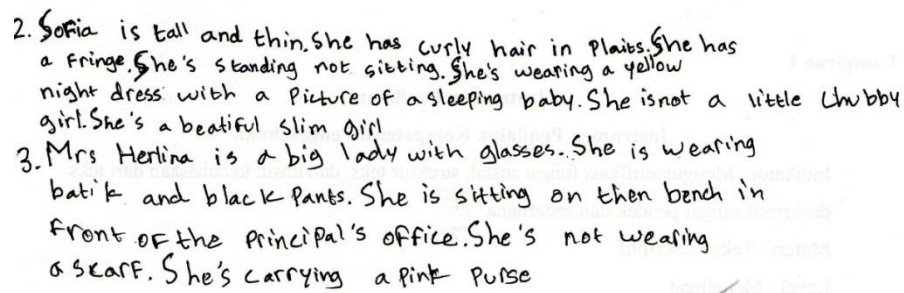 2. Sofia is tall and thin. She has curly hair in plaits. She has
a fringe. She's standing not sitting. She's wearing a yellow
night dress with a picture of a sleeping baby. She is not a little chubby
girl. She's a beatiful slim girl
3. Mrs Herlina is a big lady with glasses. She is wearing
batik and black pants. She is sitting on then bench in
front of the principal's office. She's not wearing
a scarf. She's carrying a pink purse